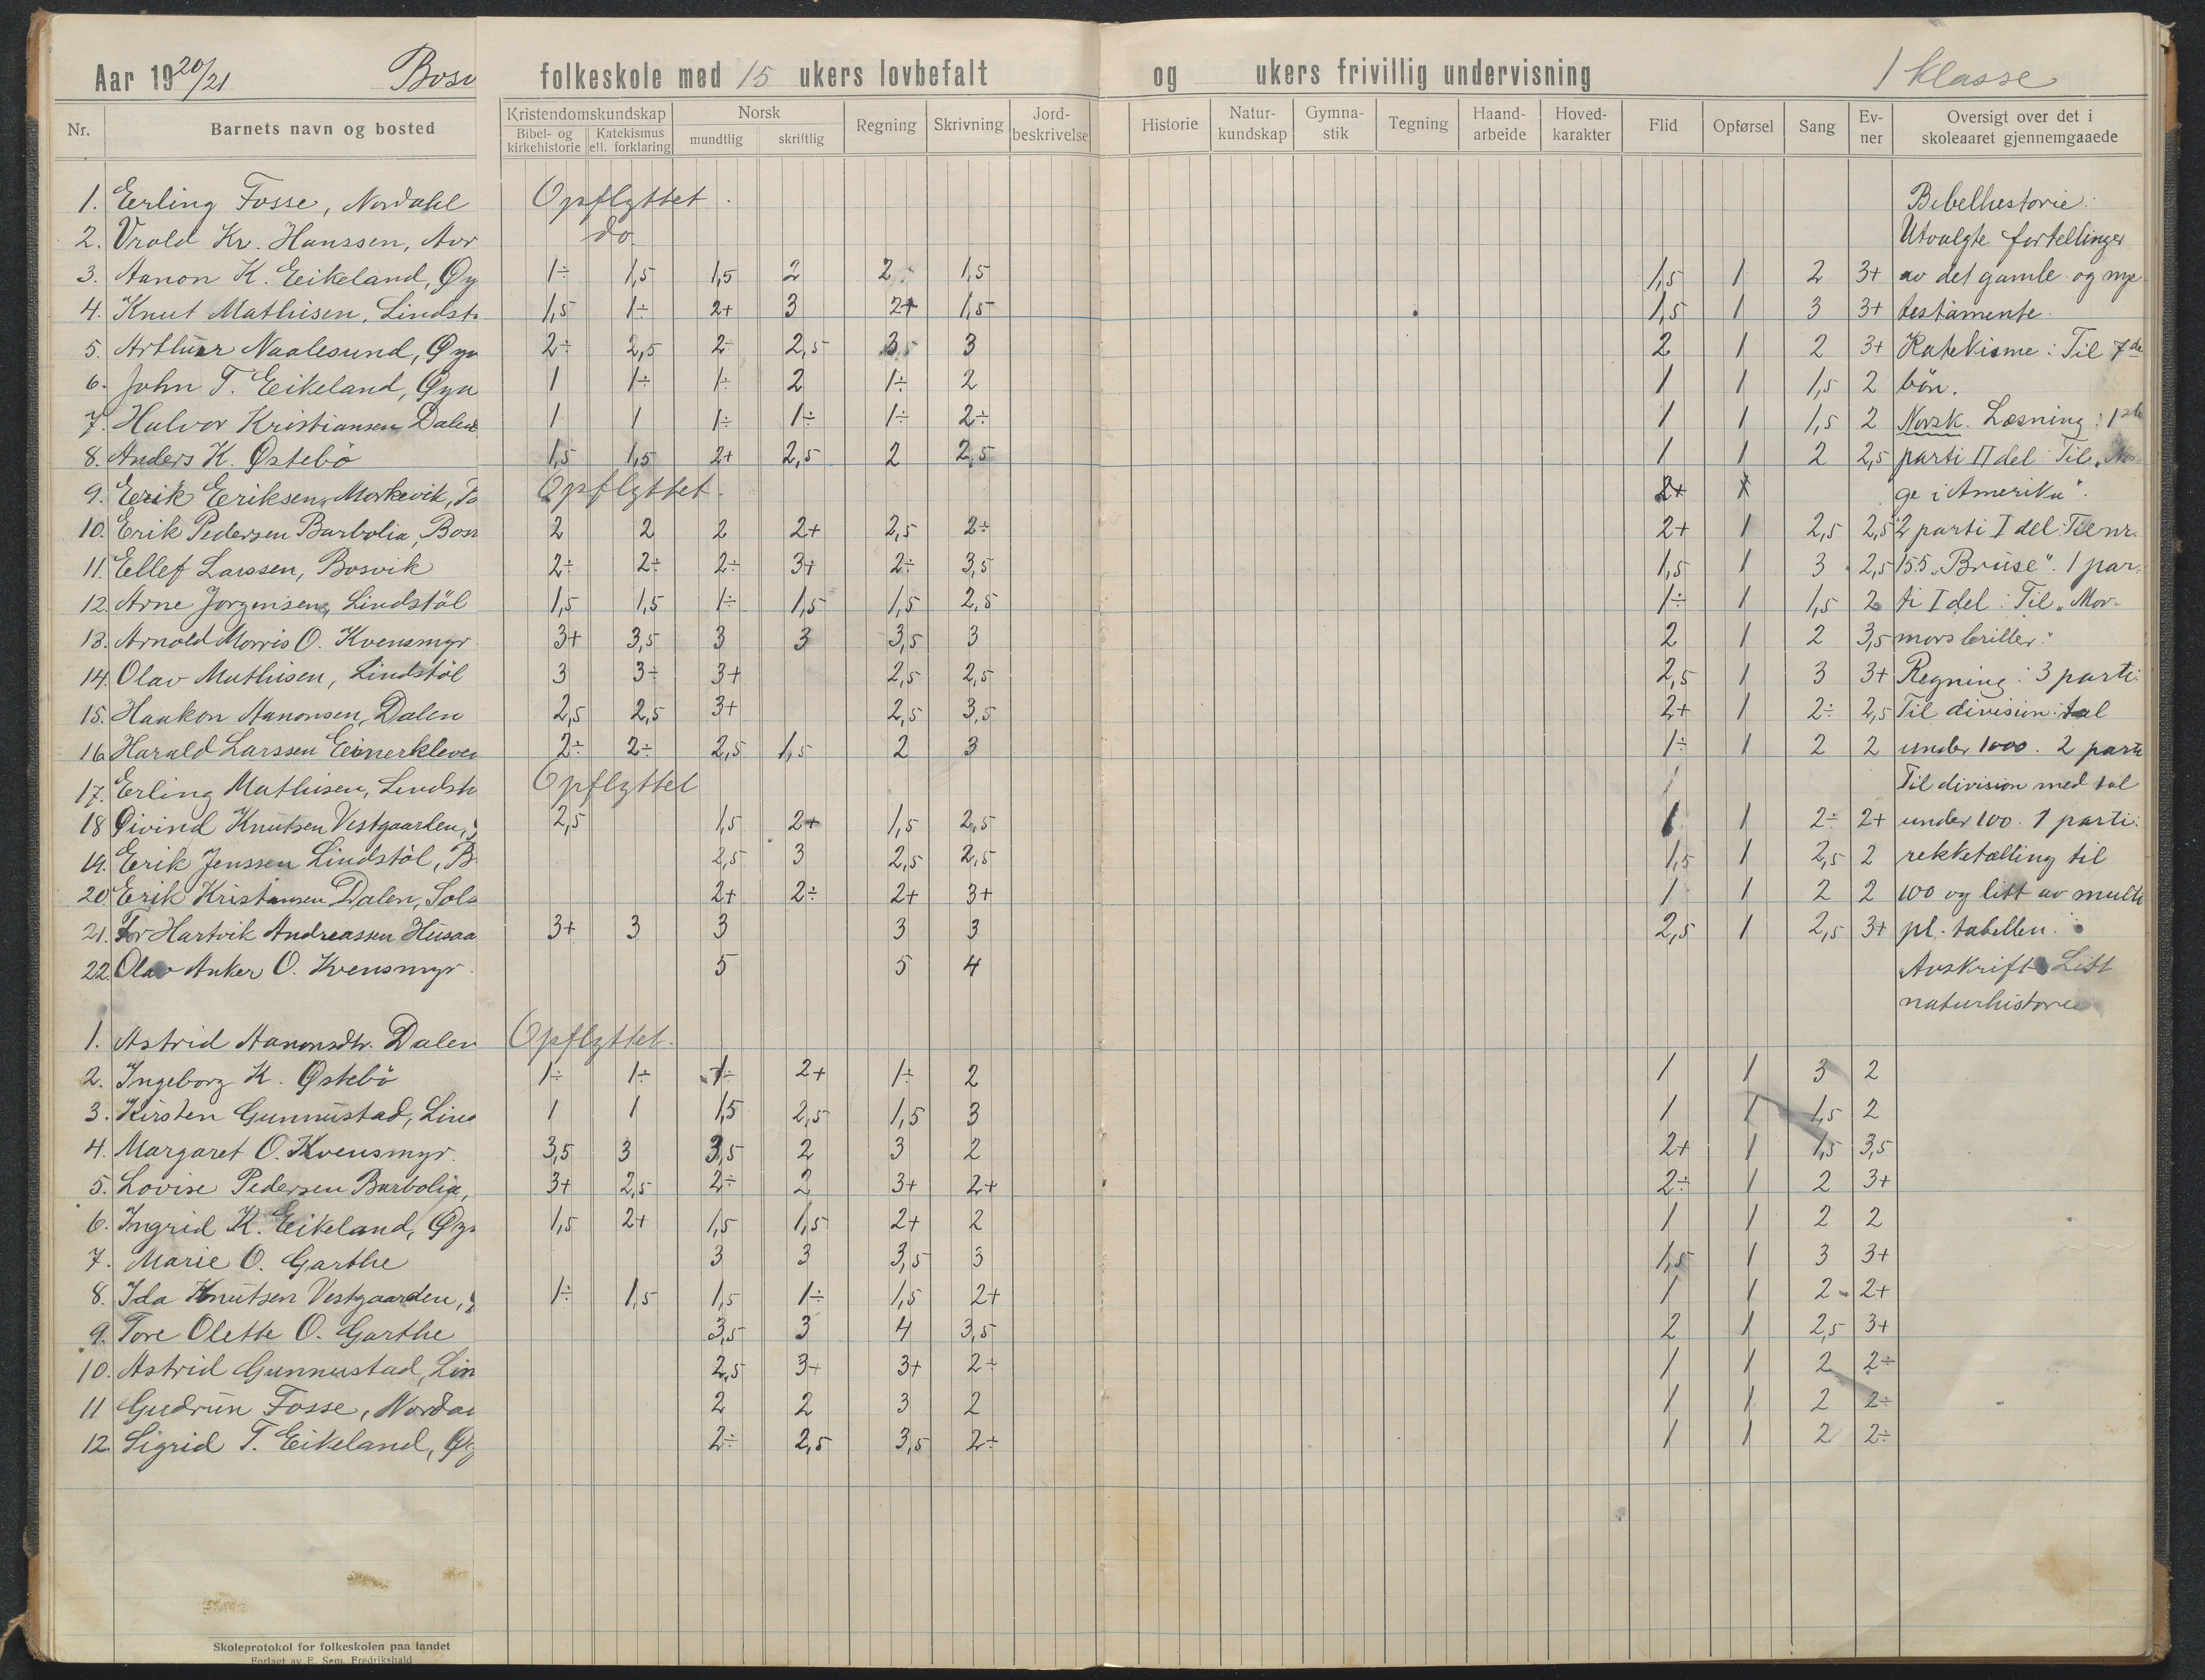 Aar 1920/21 Bosv folkeskole med 15 ukers lovbefalt og ukers frivillig undervisning 1 klasse
Nr. Barnets navn og bosted Kristendomskundskap Bibel- og kirkehistorie Katekismus ell. forklaring Norsk mundtlig skriftlig Regning Skrivning Jord-beskrivelse Historie Natur-kundskap Gymna-stik Tegning Haand-arbeide Hoved-karakter Flid Opførsel Sang Ev-ner Oversigt over det i skoleaaret gjennemgaaede
1. Erling Fosse, Nordahl Opflyttet. Bibelhestorie:
2. Vrold Kr. Hanssen, Aar do. Utvalgte fortellinger
3. Aanon K. Eikeland, Øy 1÷ 1,5 1,5 2 2 1,5 1,5 1 2 3+ av det gamle og nye
4. Knut Mathisen, Lindst 1,5 1÷ 2+ 3 2+ 1,5 1,5 1 3 3+ testamente.
5. Arthur Naalesund, Øyn 2÷ 2,5 2÷ 2,5 3,5 3 2 1 2 3+ Katekisme: Til 7de
6. John T. Eikeland, Øyn 1 1÷ 1÷ 2 1÷ 2 1 1 1,5 2 bön.
7. Halvor Kristiansen Dalen 1 1 1÷ 1÷ 1÷ 2÷ 1 1 1,5 2 Norsk. Læsning: 1ste
8. Anders K. Østebö 1,5 1,5 2+ 2,5 2 2,5 1 1 2 2,5 parti II del Til „Nor-
9. Erik Eriksen, Morkevik, Opflyttet. 2+ 1 ge i Amerika".
10. Erik Pedersen Barbolia, Bos 2 2 2 2+ 2,5 2÷ 2+ 1 2,5 2,5 2 parti I del: Til nr.
11. Ellef Larssen, Bosvik 2÷ 2÷ 2÷ 3+ 2÷ 3,5 1,5 1 3 2,5 155 „Bruse". 1 par-
12. Arne Jorgensen, Lindstöl 1,5 1,5 1÷ 1,5 1,5 2,5 1÷ 1 1,5 2 ti I del: Til „Mor-
13. Arnold Morris O. Kvensmyr 3+ 3,5 3 3 3,5 3 2 1 2 3,5 mors briller."
14. Olav Mathisen, Lindstöl 3 3÷ 3+ 2,5 2,5 2,5 1 3 3+ Regning: 3 parti:
15. Haakon Aanonsen, Dalen 2,5 2,5 3+ 2,5 3,5 2+ 1 2÷ 2,5 Til division: tal
16. Harald Larssen Eimerkleven 2÷ 2÷ 2,5 1,5 2 3 1÷ 1 2 2 under 1000. 2 parti
17. Erling Mathisen, Lindst Opflyttet Til division med tal
18 Øivind Knutsen Vestgaarden, 2,5 1,5 2+ 1,5 2,5 1 1 2÷ 2+ under 100. 1 parti:
19. Erik Jenssen Lindstöl, B 2,5 3 2,5 2,5 1,5 1 2,5 2 rekketælling til
20 Erik Kristiansen Dalen, Sol 2+ 2÷ 2+ 3+ 1 1 2 2 100 og litt av multi
21. Tor Hartvik Andreassen Husaa 3+ 3 3 3 3 2,5 1 2,5 3+ pl. tabellen.
22. Olav Anker O. Kvensmyr. 5 5 4 Avskrift Litt
naturhistorie
1. Astrid Aanonsdtr. Dalen Opflyttet.
2. Ingeborg K. Østebö 1÷ 1÷ 1÷ 2+ 1÷ 2 1 1 3 2
3. Kirsten Gunnustad, Lind 1 1 1,5 2,5 1,5 3 1 1 1,5 2
4. Margaret O. Kvensmyr. 3,5 3 3,5 2 3 2 2+ 1 1,5 3,5
5. Lovise Pedersen Barbolia, 3+ 2,5 2÷ 2 3+ 2+ 2÷ 1 2 3+
6. Ingrid K. Eikeland, Øy 1,5 2+ 1,5 1,5 2+ 2 1 1 2 2
7. Marie O. Garthe 3 3 3,5 3 1,5 1 3 3+
8. Ida Knutsen Vestgaarden, 1÷ 1,5 1,5 1÷ 1,5 2+ 1 1 2 2+
9. Tore Olette O. Garthe 3,5 3 4 3,5 2 1 2,5 3+
10. Astrid Gunnustad, Lin 2,5 3+ 3+ 2÷ 1 1 2 2÷
11 Gudrun Fosse, Norda 2 2 3 2 1 1 2 2÷
12. Sigrid T. Eikeland, Øy 2÷ 2,5 3,5 2÷ 1 1 2 2÷
Skoleprotokol for folkeskolen paa landet
Forlagt av E. Sem, Fredrikshald